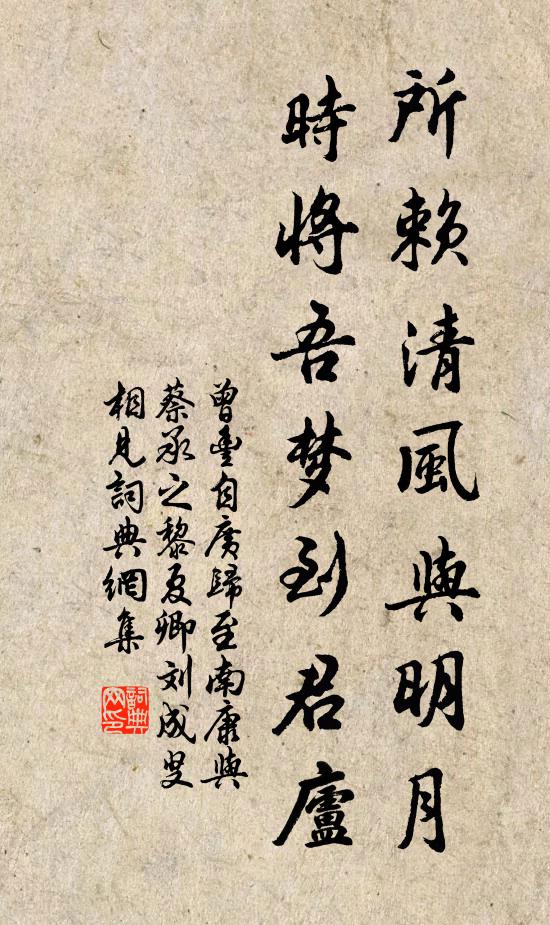 所赖清風與明月
時將吾梦到君廬
曾豊自廣歸至南康與
蔡承之黎复卿刘成叟
相見詞典網集
詞典网印